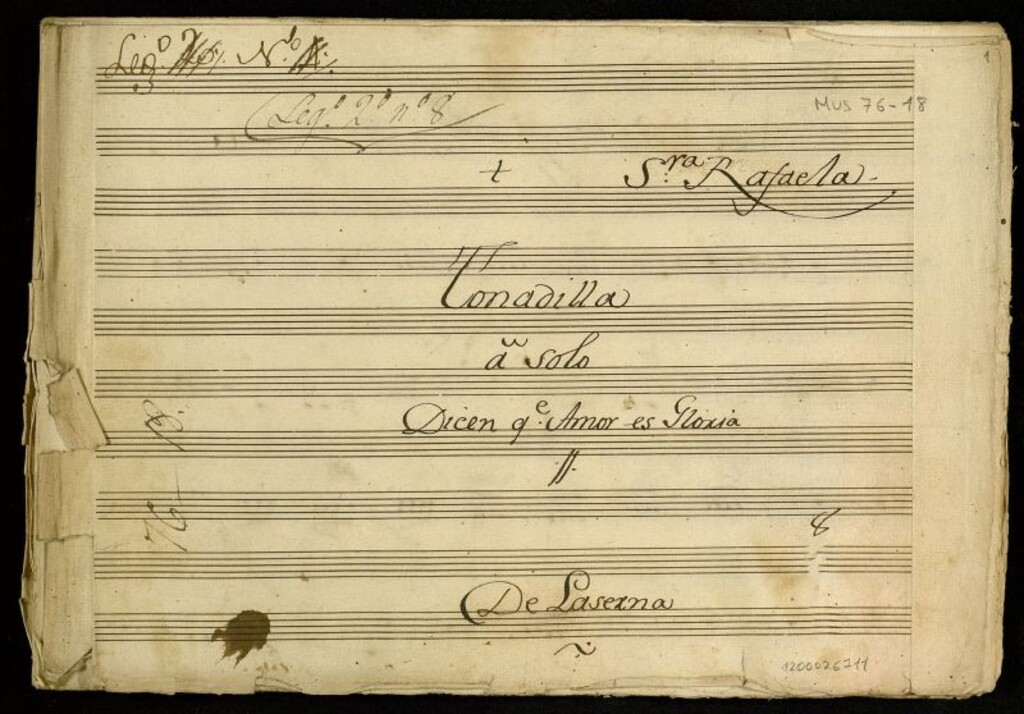 Leg.º Nº
1
(Leg.º 2.º nº 8
MUS 76-18
+
S.ra Rafaela
Tonadilla
a solo
Dicen q.e Amor es Gloria
76
8
De Laserna
1200026711